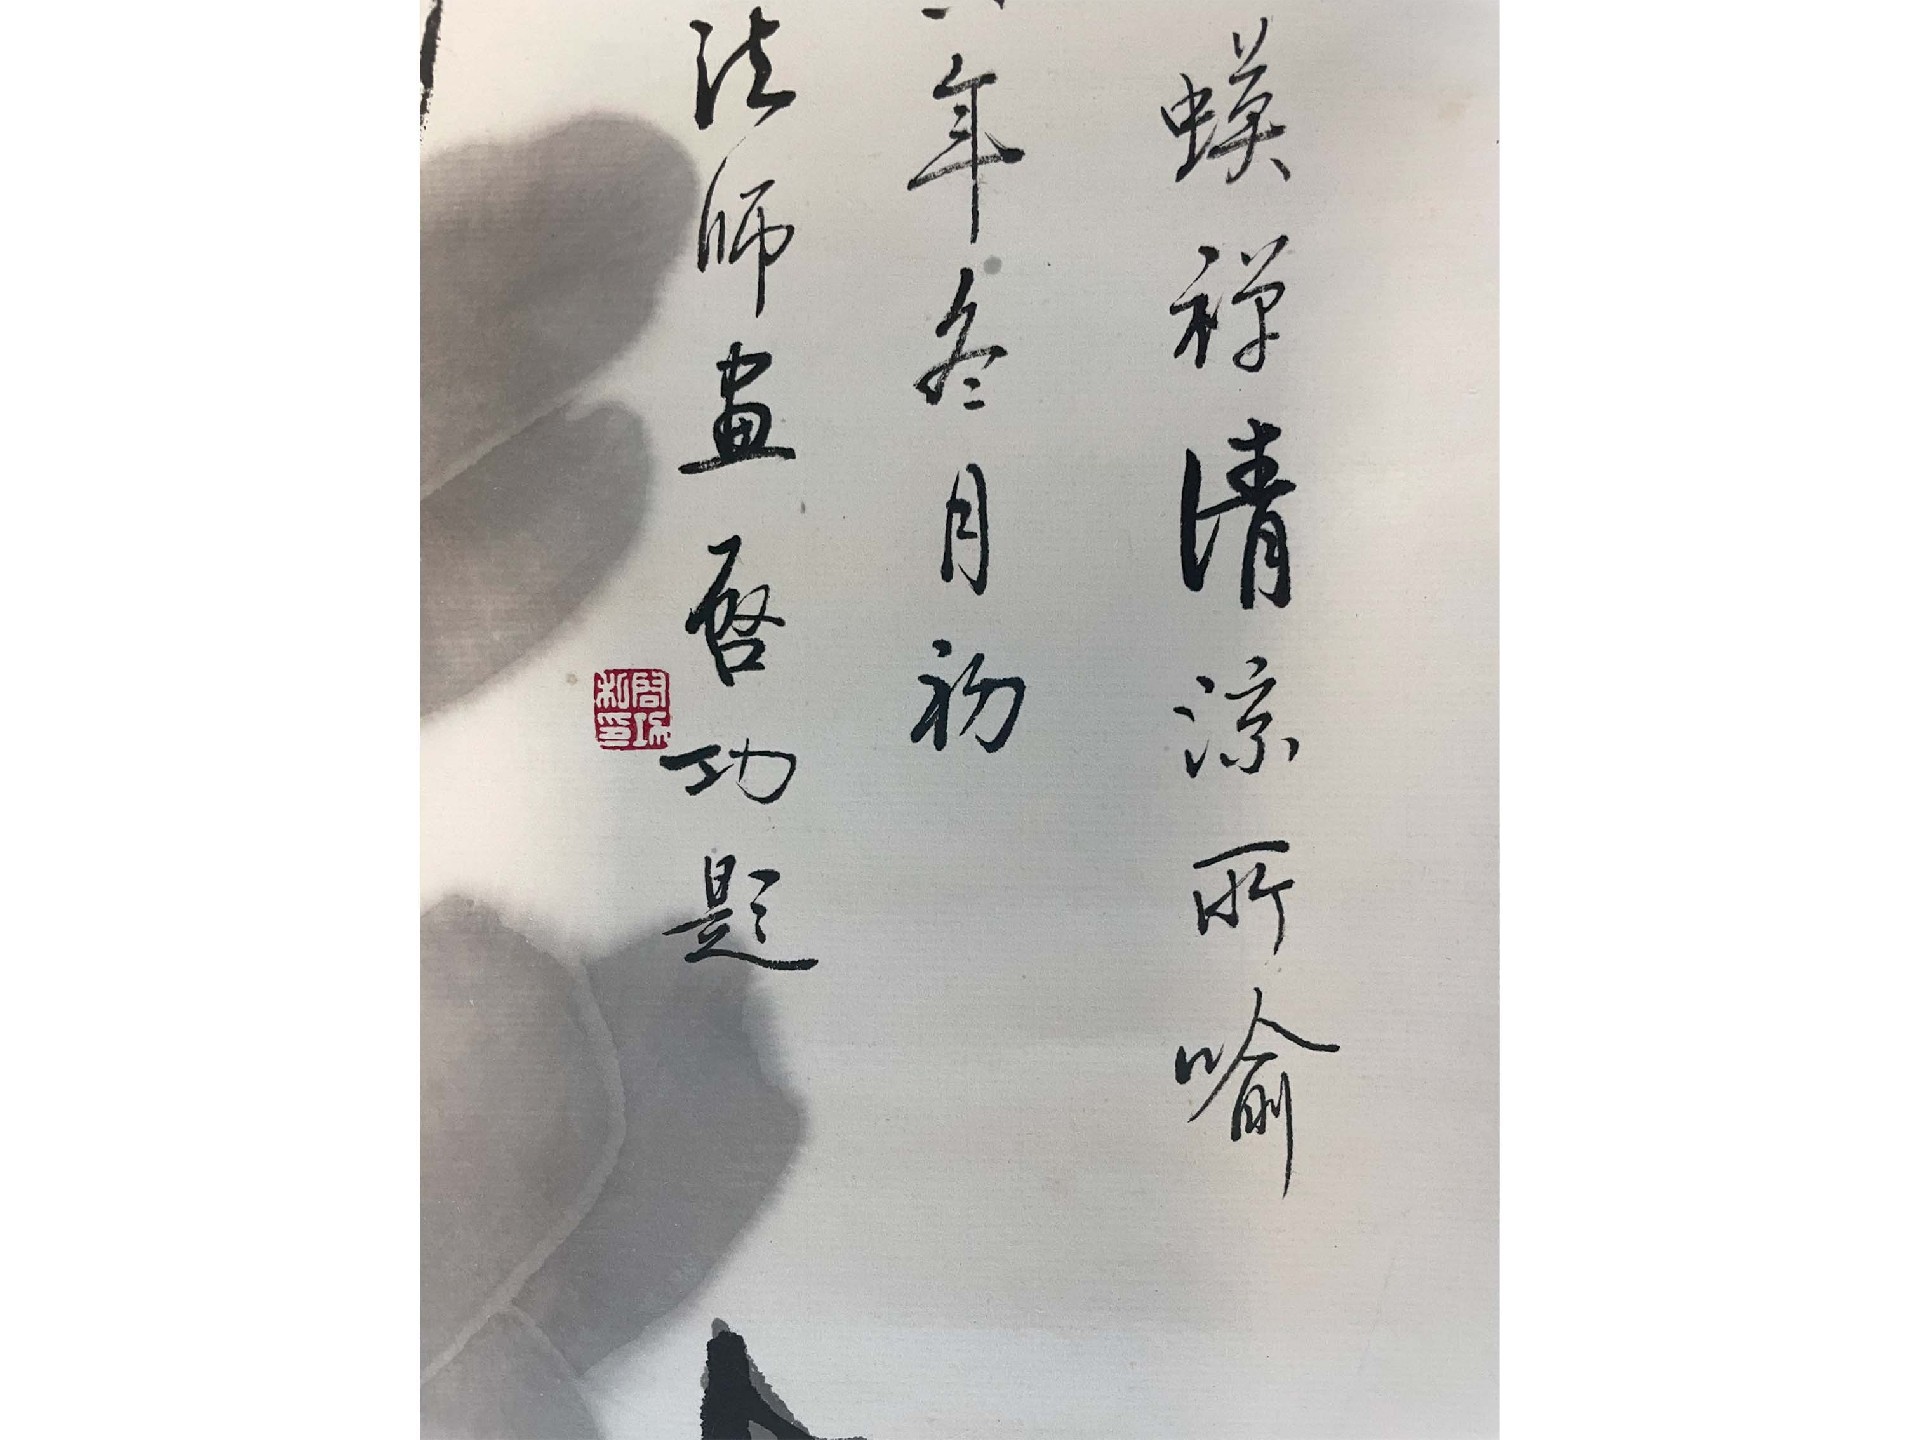 蟆禪清涼所喻
年冬月初
法師畫啓功題
啓功私印